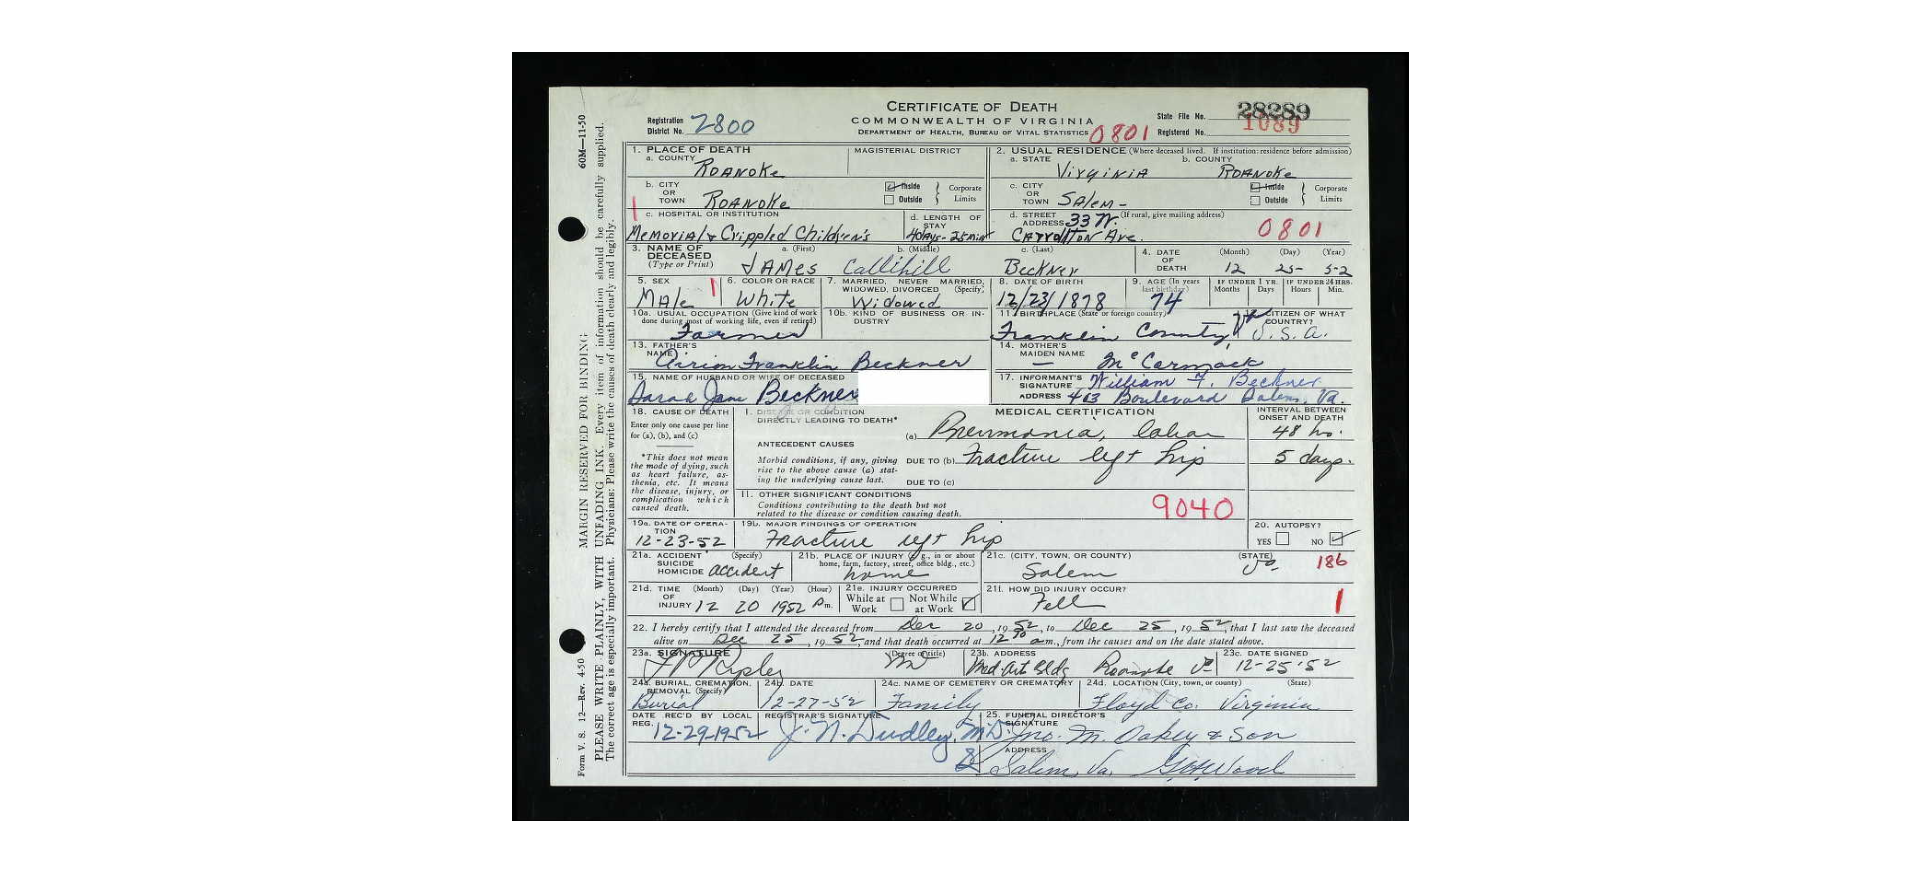 CERTIFICATE OF DEATH
COMMONWEALTH OF VIRGINIA
DEPARTMENT OF HEALTH, BUREAU OF VITAL STATISTICS 0801
Registration District No. 2800
State File No. 28289
Registered No. 1089
1. PLACE OF DEATH
a. COUNTY ROANOKE
MAGISTERIAL DISTRICT
b. CITY OR TOWN ROANOKE
Inside
Outside
Corporate Limits
c. HOSPITAL OR INSTITUTION
Memorial & Crippled Children's
d. LENGTH OF STAY
4 days - 25 min
2. USUAL RESIDENCE (Where deceased lived. If institution: residence before admission)
a. STATE Virginia
b. COUNTY ROANOKE
c. CITY OR TOWN Salem -
Inside
Outside
Corporate Limits
d. STREET ADDRESS (If rural, give mailing address)
33 W. Carrollton Ave.
0801
3. NAME OF DECEASED (Type or Print)
a. (First) James
b. (Middle) Callihill
c. (Last) Beckner
4. DATE OF DEATH
(Month) (Day) (Year)
12 25- 52
5. SEX Male 1
6. COLOR OR RACE White
7. MARRIED, NEVER MARRIED, WIDOWED, DIVORCED (Specify) Widowed
8. DATE OF BIRTH 12/23/1878
9. AGE (In years last birthday) 74
IF UNDER 1 YR. Months Days
IF UNDER 24 HRS. Hours Min.
10a. USUAL OCCUPATION (Give kind of work done during most of working life, even if retired) Farmer
10b. KIND OF BUSINESS OR INDUSTRY
11. BIRTHPLACE (State or foreign country) Franklin County, Va
CITIZEN OF WHAT COUNTRY? U.S.A.
13. FATHER'S NAME Franklin Beckner
14. MOTHER'S MAIDEN NAME — McCormack
15. NAME OF HUSBAND OR WIFE OF DECEASED
Sarah Jane Beckner
17. INFORMANT'S SIGNATURE William F. Beckner
ADDRESS 403 Boulevard Salem, Va.
18. CAUSE OF DEATH
Enter only one cause per line for (a), (b), and (c)
*This does not mean the mode of dying, such as heart failure, asthenia, etc. It means the disease, injury, or complication which caused death.
MEDICAL CERTIFICATION
INTERVAL BETWEEN ONSET AND DEATH
I. DISEASE OR CONDITION DIRECTLY LEADING TO DEATH*
(a) Pneumonia, lobar 48 hr.
ANTECEDENT CAUSES
Morbid conditions, if any, giving rise to the above cause (a) stating the underlying cause last.
DUE TO (b) Fracture left hip 5 days.
DUE TO (c)
II. OTHER SIGNIFICANT CONDITIONS
Conditions contributing to the death but not related to the disease or condition causing death.
9040
19a. DATE OF OPERATION 12-23-52
19b. MAJOR FINDINGS OF OPERATION Fracture left hip
20. AUTOPSY?
YES NO
21a. ACCIDENT SUICIDE HOMICIDE (Specify) accident
21b. PLACE OF INJURY (e.g., in or about home, farm, factory, street, office bldg., etc.) home
21c. (CITY, TOWN, OR COUNTY) Salem
(STATE) Va. 186
21d. TIME OF INJURY (Month) (Day) (Year) (Hour)
12 20 1952 Pm.
21e. INJURY OCCURRED
While at Work
Not While at Work
21f. HOW DID INJURY OCCUR?
Fell 1
22. I hereby certify that I attended the deceased from Dec 20, 1952, to Dec 25, 1952, that I last saw the deceased
alive on Dec 25, 1952, and that death occurred at 12 10 am., from the causes and on the date stated above.
23a. SIGNATURE (Degree or title) MD
23b. ADDRESS Med Art Bldg Roanoke Va
23c. DATE SIGNED 12-25-52
24a. BURIAL, CREMATION, REMOVAL (Specify) Burial
24b. DATE 12-27-52
24c. NAME OF CEMETERY OR CREMATORY Family
24d. LOCATION (City, town, or county) (State) Floyd Co. Virginia
DATE REC'D BY LOCAL REG. 12-29-1952
REGISTRAR'S SIGNATURE J. N. Dudley, M.D.
25. FUNERAL DIRECTOR'S SIGNATURE Jno. M. Oakey & Son
ADDRESS
Salem, Va. G.H. Wood
Form V. S. 12—Rev. 4-50 MARGIN RESERVED FOR BINDING 60M—11-50
PLEASE WRITE PLAINLY, WITH UNFADING INK. Every item of information should be carefully supplied.
The correct age is especially important. Physicians: Please write the causes of death clearly and legibly.